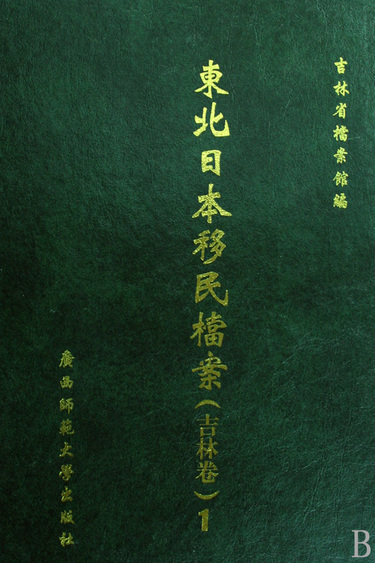 吉林省檔案館編
東北日本移民檔案（吉林卷）1
廣西師範大學出版社
B